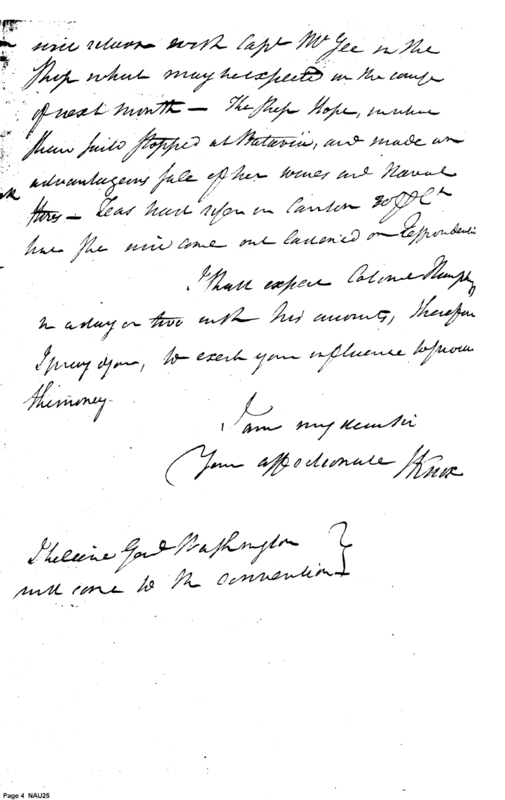 will return with Capt McGee in the
Ship which may be expected in the course
of next month — The Ship Hope, in which
Shaw sail'd stopped at Batavia, and made an
advantageous sale of her wines and Naval
Stores — Teas had risen in Canton 30
have she will come out on Respondentia
I shall expect Colonel Humphreys
in a day or two with his accounts, therefore
I pray you, to exert your influence to procure
the money.
I am my dear sir
Your affectionate HKnox
I believe Genl Washington
will come to the convention
Page 4 NAU25